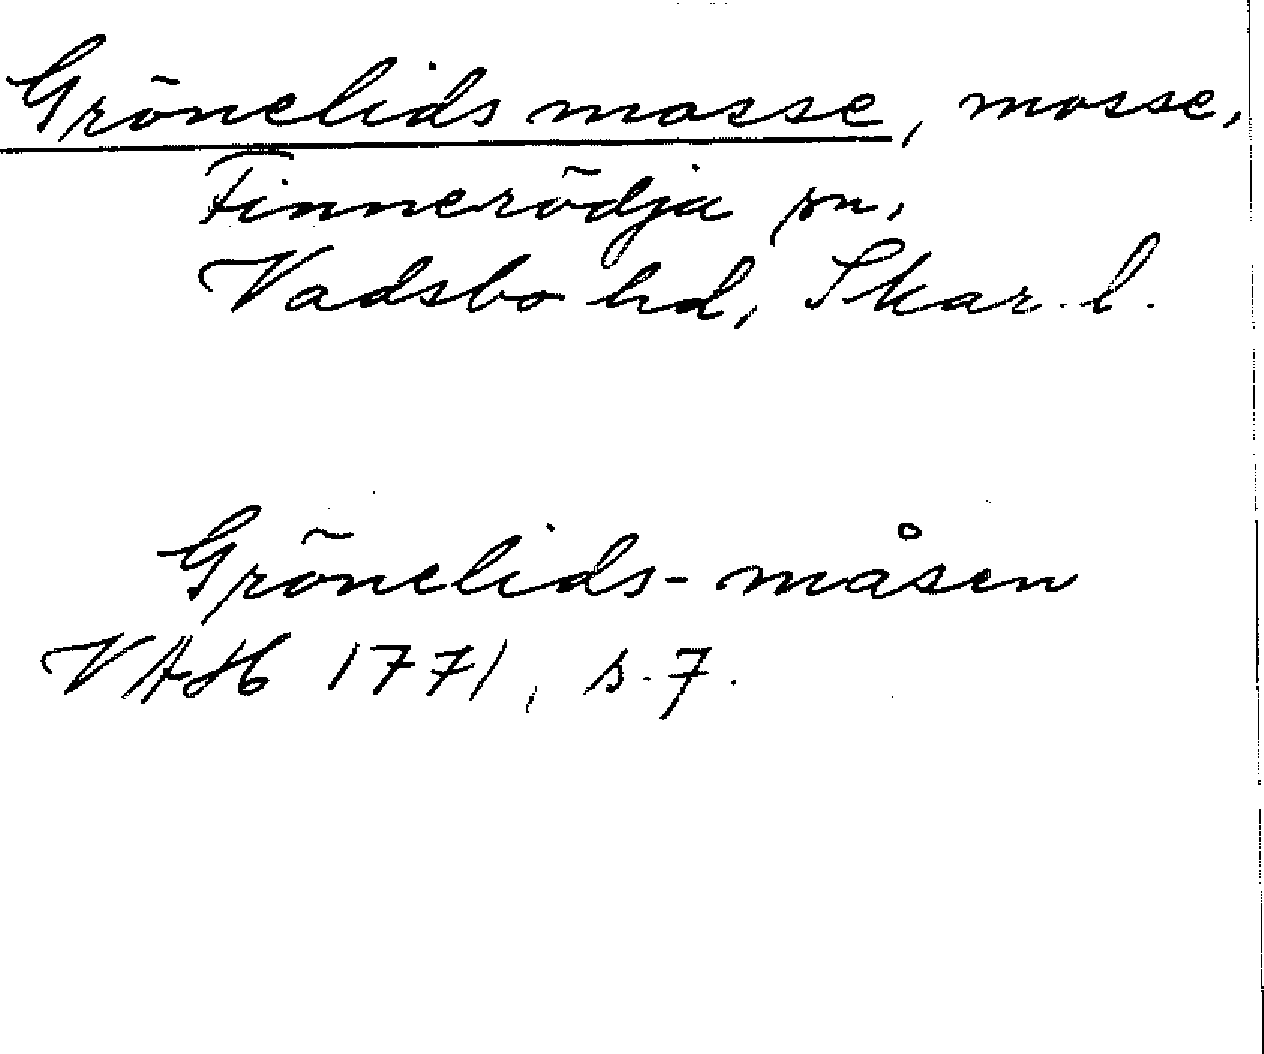 Grönelids mosse, mosse,
Finnerödja sn,
Vadsbo hd, Skar. l.
Grönelids-måsen
VAH 1771, s. 7.